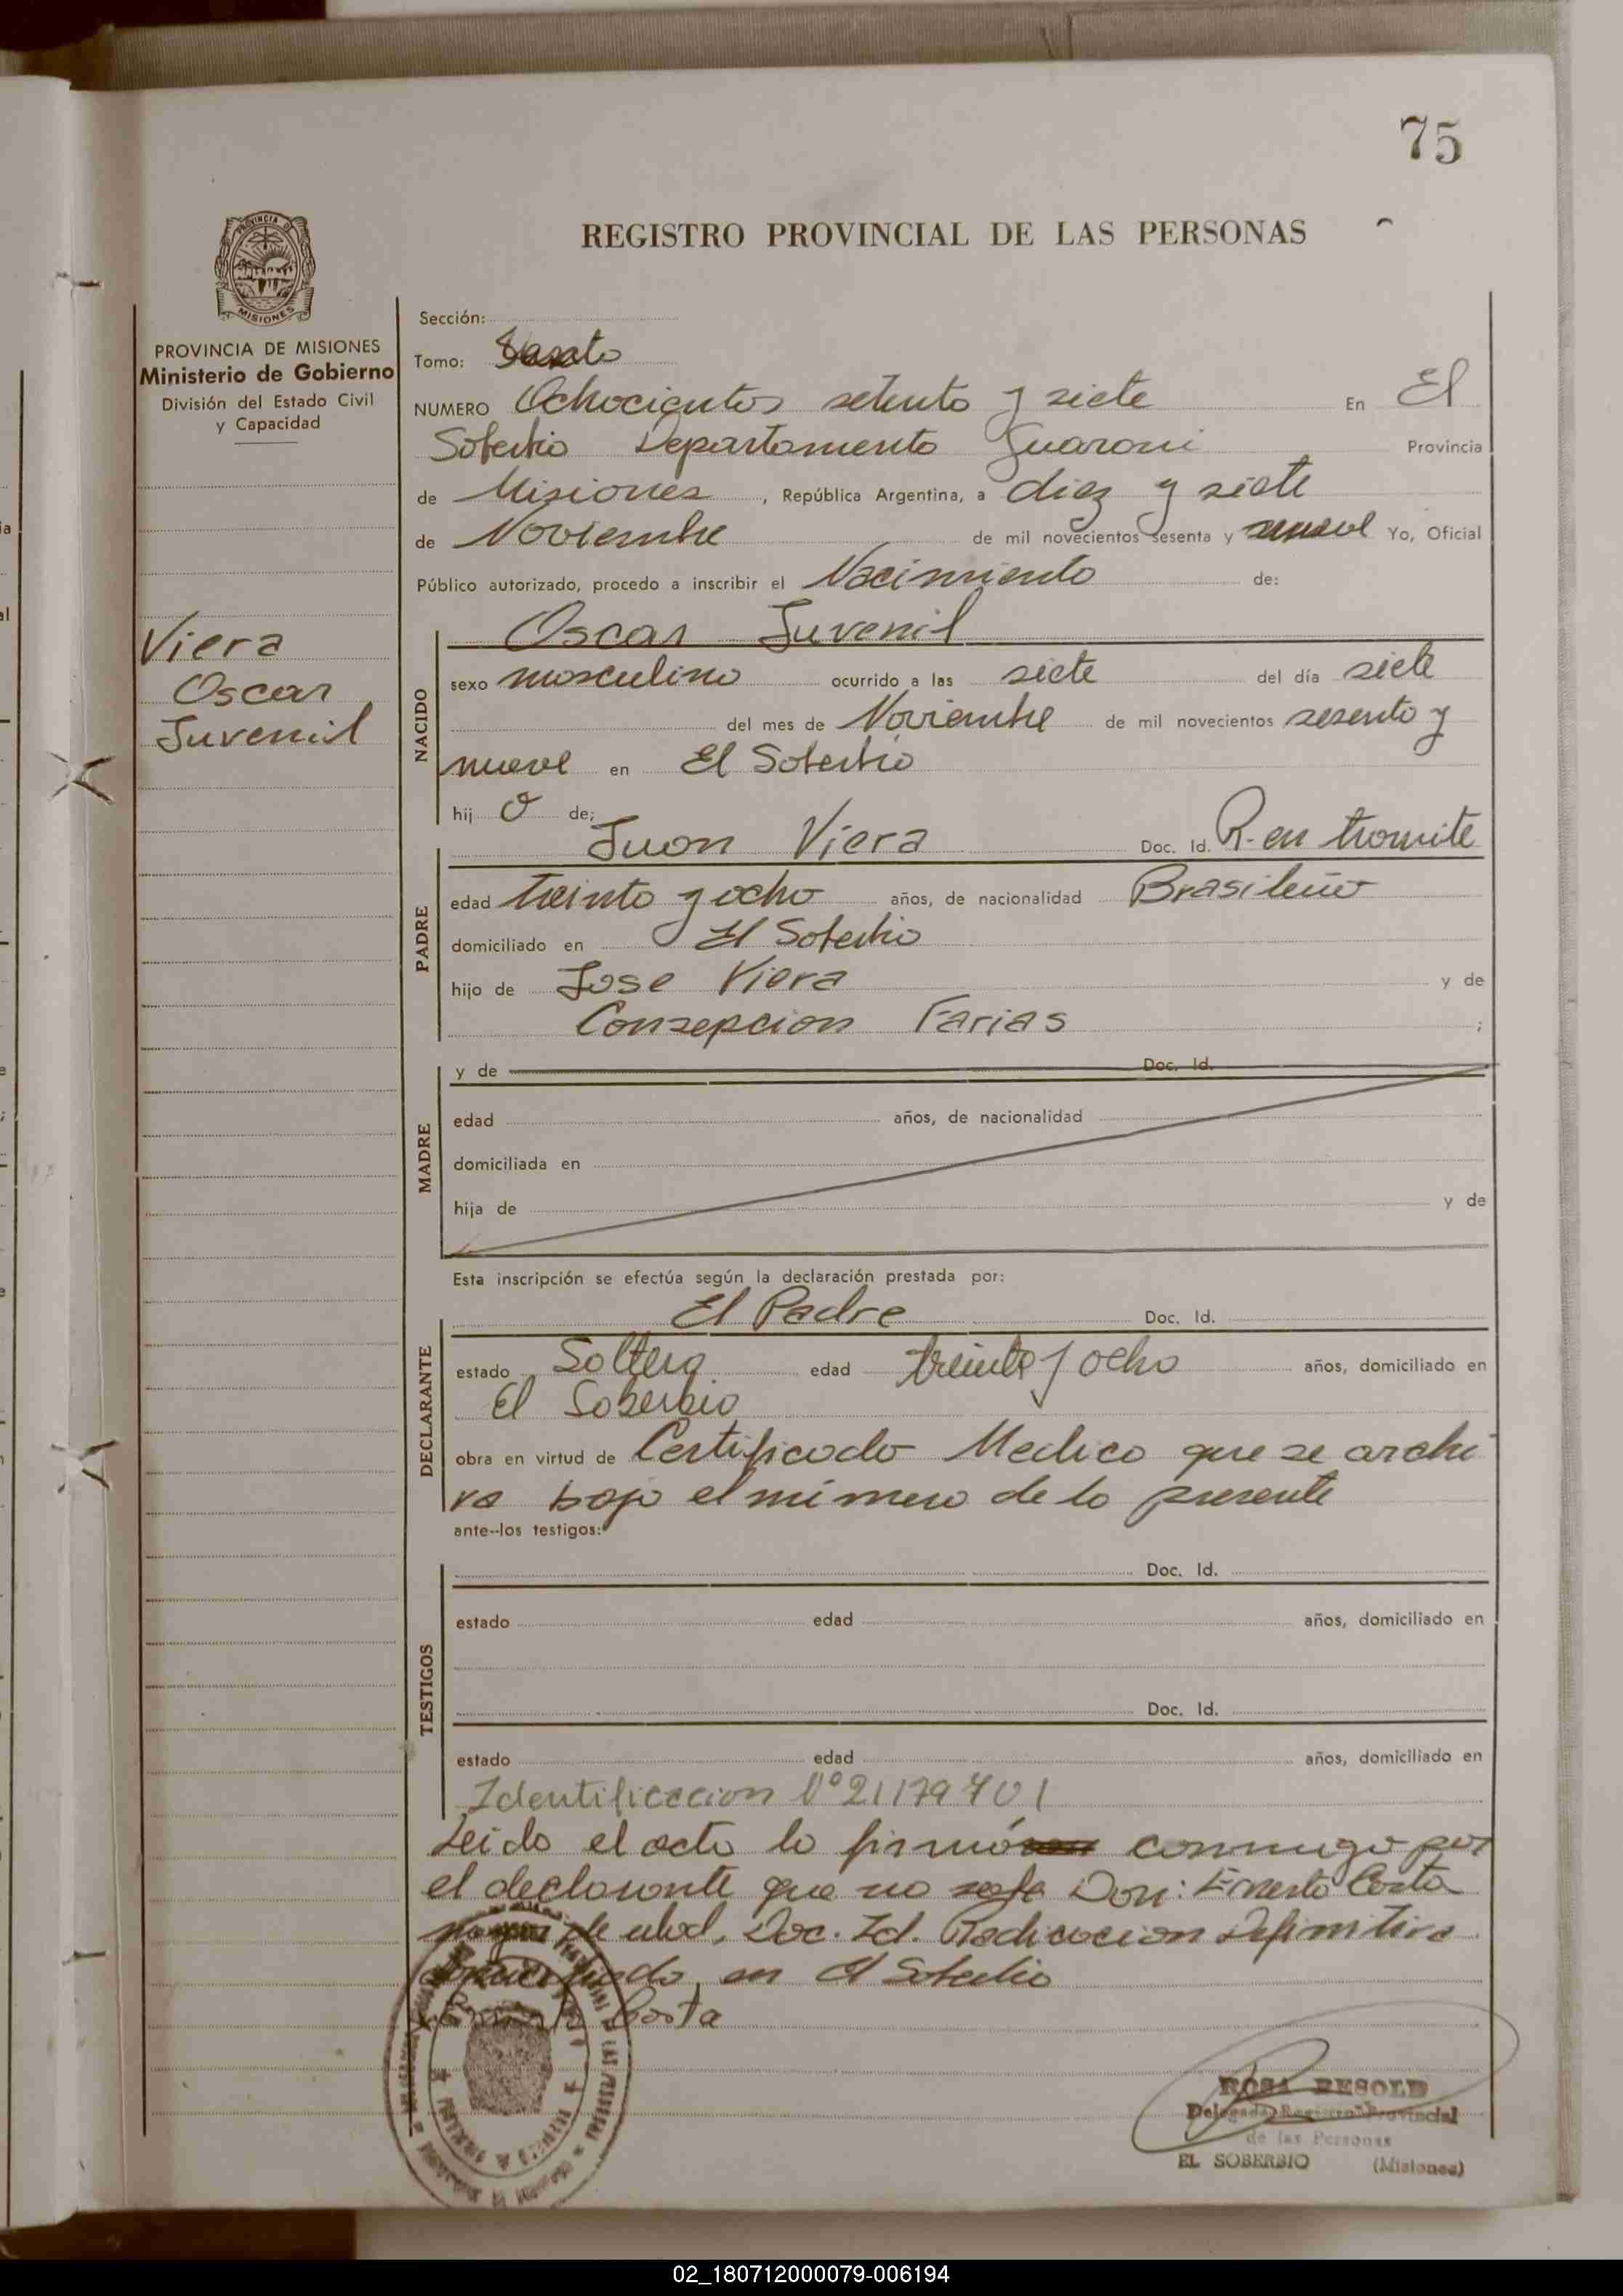 75
REGISTRO PROVINCIAL DE LAS PERSONAS
PROVINCIA DE MISIONES
Ministerio de Gobierno
División del Estado Civil
y Capacidad
Viera
Oscar
Juvenil
Sección:
Tomo:
NUMERO Ochocientos setenta y siete En El
Soberbio Departamento Guarani Provincia
de Misiones, República Argentina, a diez y siete
de Noviembre de mil novecientos sesenta y nueve Yo, Oficial
Público autorizado, procedo a inscribir el Nacimiento de:
NACIDO
Oscar Juvenil
sexo masculino ocurrido a las siete del día siete
del mes de Noviembre de mil novecientos sesenta y
nueve en El Soberbio
hij o de;
PADRE
Juan Viera Doc. Id. R-en tramite
edad treinta y ocho años, de nacionalidad Brasileño
domiciliado en El Soberbio
hijo de Jose Viera y de
Consepcion Farias ;
MADRE
y de Doc. Id.
edad años, de nacionalidad
domiciliada en
hija de y de
Esta inscripción se efectúa según la declaración prestada por:
DECLARANTE
El Padre Doc. Id.
estado Soltero edad treinta y ocho años, domiciliado en
El Soberbio
obra en virtud de Certificado Medico que se archi
va bajo el número de la presente
ante--los testigos:
TESTIGOS
Doc. Id.
estado edad años, domiciliado en
Doc. Id.
estado edad años, domiciliado en
Identificacion Nº 21179701
Leido el acta lo firmó conmigo por
el declarante que no Don: Ernesto Costa
de edad, Doc. Id. Radicacion Definitiva
en El Soberbio
Costa
ROSA RESOLD
Delegada Registro Provincial
de las Personas
EL SOBERBIO (Misiones)
02_180712000079-006194